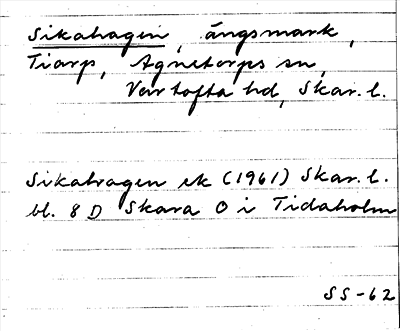 Sikahagen, ängsmark,
Tiarp, Agnetorps sn,
Vartofta hd, Skar. l.
Sikahagen ek (1961) Skar. l.
bl. 8 D Skara O i Tidaholm
SS-62